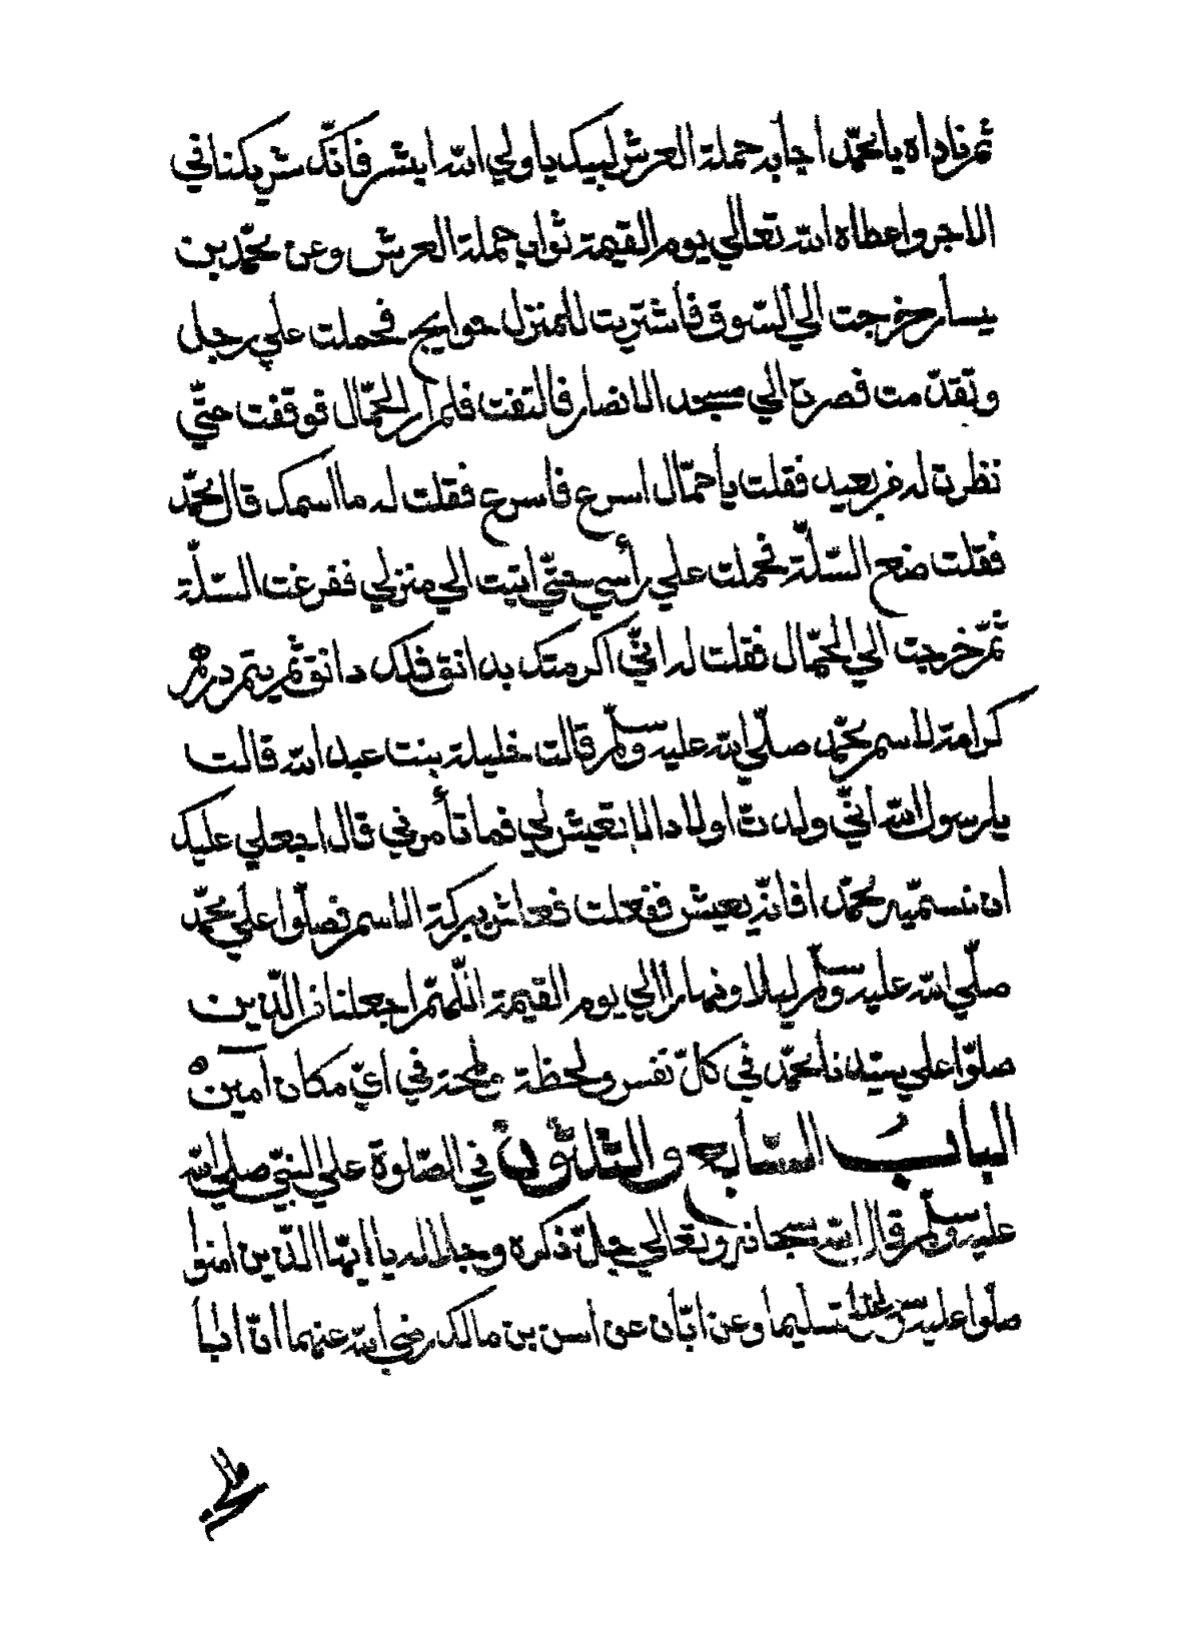 ثم ناداه يا محمّد اجابه حملة العرش لبيك يا ولي الله ابشر فانّك شريكنا في
الاجر واعطاه الله تعالي يوم القيمة ثواب حملة العرش وعن محمّد بن
يسار خرجت الي السّوق فأشتريت للمنزل حوايج فحملت علي رجل
وتقدّمت فصرت الي مسجد الانصار فالتفت فلم أر الحمّال فوقفت حتّي
نظرت له من بعيد فقلت يا حمّال اسرع فاسرع فقلت له ما اسمك قال محمّد
فقلت ضع السّلّة فحملت علي رأسي حتّي اتيت الي منزلي ففرغت السّلّة
ثمّ خرجت الي الحمّال فقلت له انّي اكرمتك بدانق فلك دانق ثم يتم درهم
كرامة لاسم محمّد صلّي الله عليه وسلم قالت خليلة بنت عبد الله قالت
يا رسول الله انّي ولدت اولادا لا تعيش لي فما تأمرني قال اجعلي عليك
ان تسمّيه محمّدا فانّه يعيش ففعلت فعاش ببركة الاسم فصلّوا علي محمّد
صلّي الله عليه وسلم ليلا ونهارا الي يوم القيمة اللّهمّ اجعلنا من الّذين
صلوّا علي سيّدنا محمّد في كلّ نفس ولحظة ولمحة في ايّ مكان آمين
الباب السّابع والثلثون في الصّلوة علي النبّي صلي الله
عليه وسلم قال الله سبحانه وتعالي جلّ ذكره وجلاله يا ايّها الّذين امنوا
صلّوا عليه وسلموا تسليما وعن ابّان عن انس بن مالك رضي الله عنهما انّ ابا